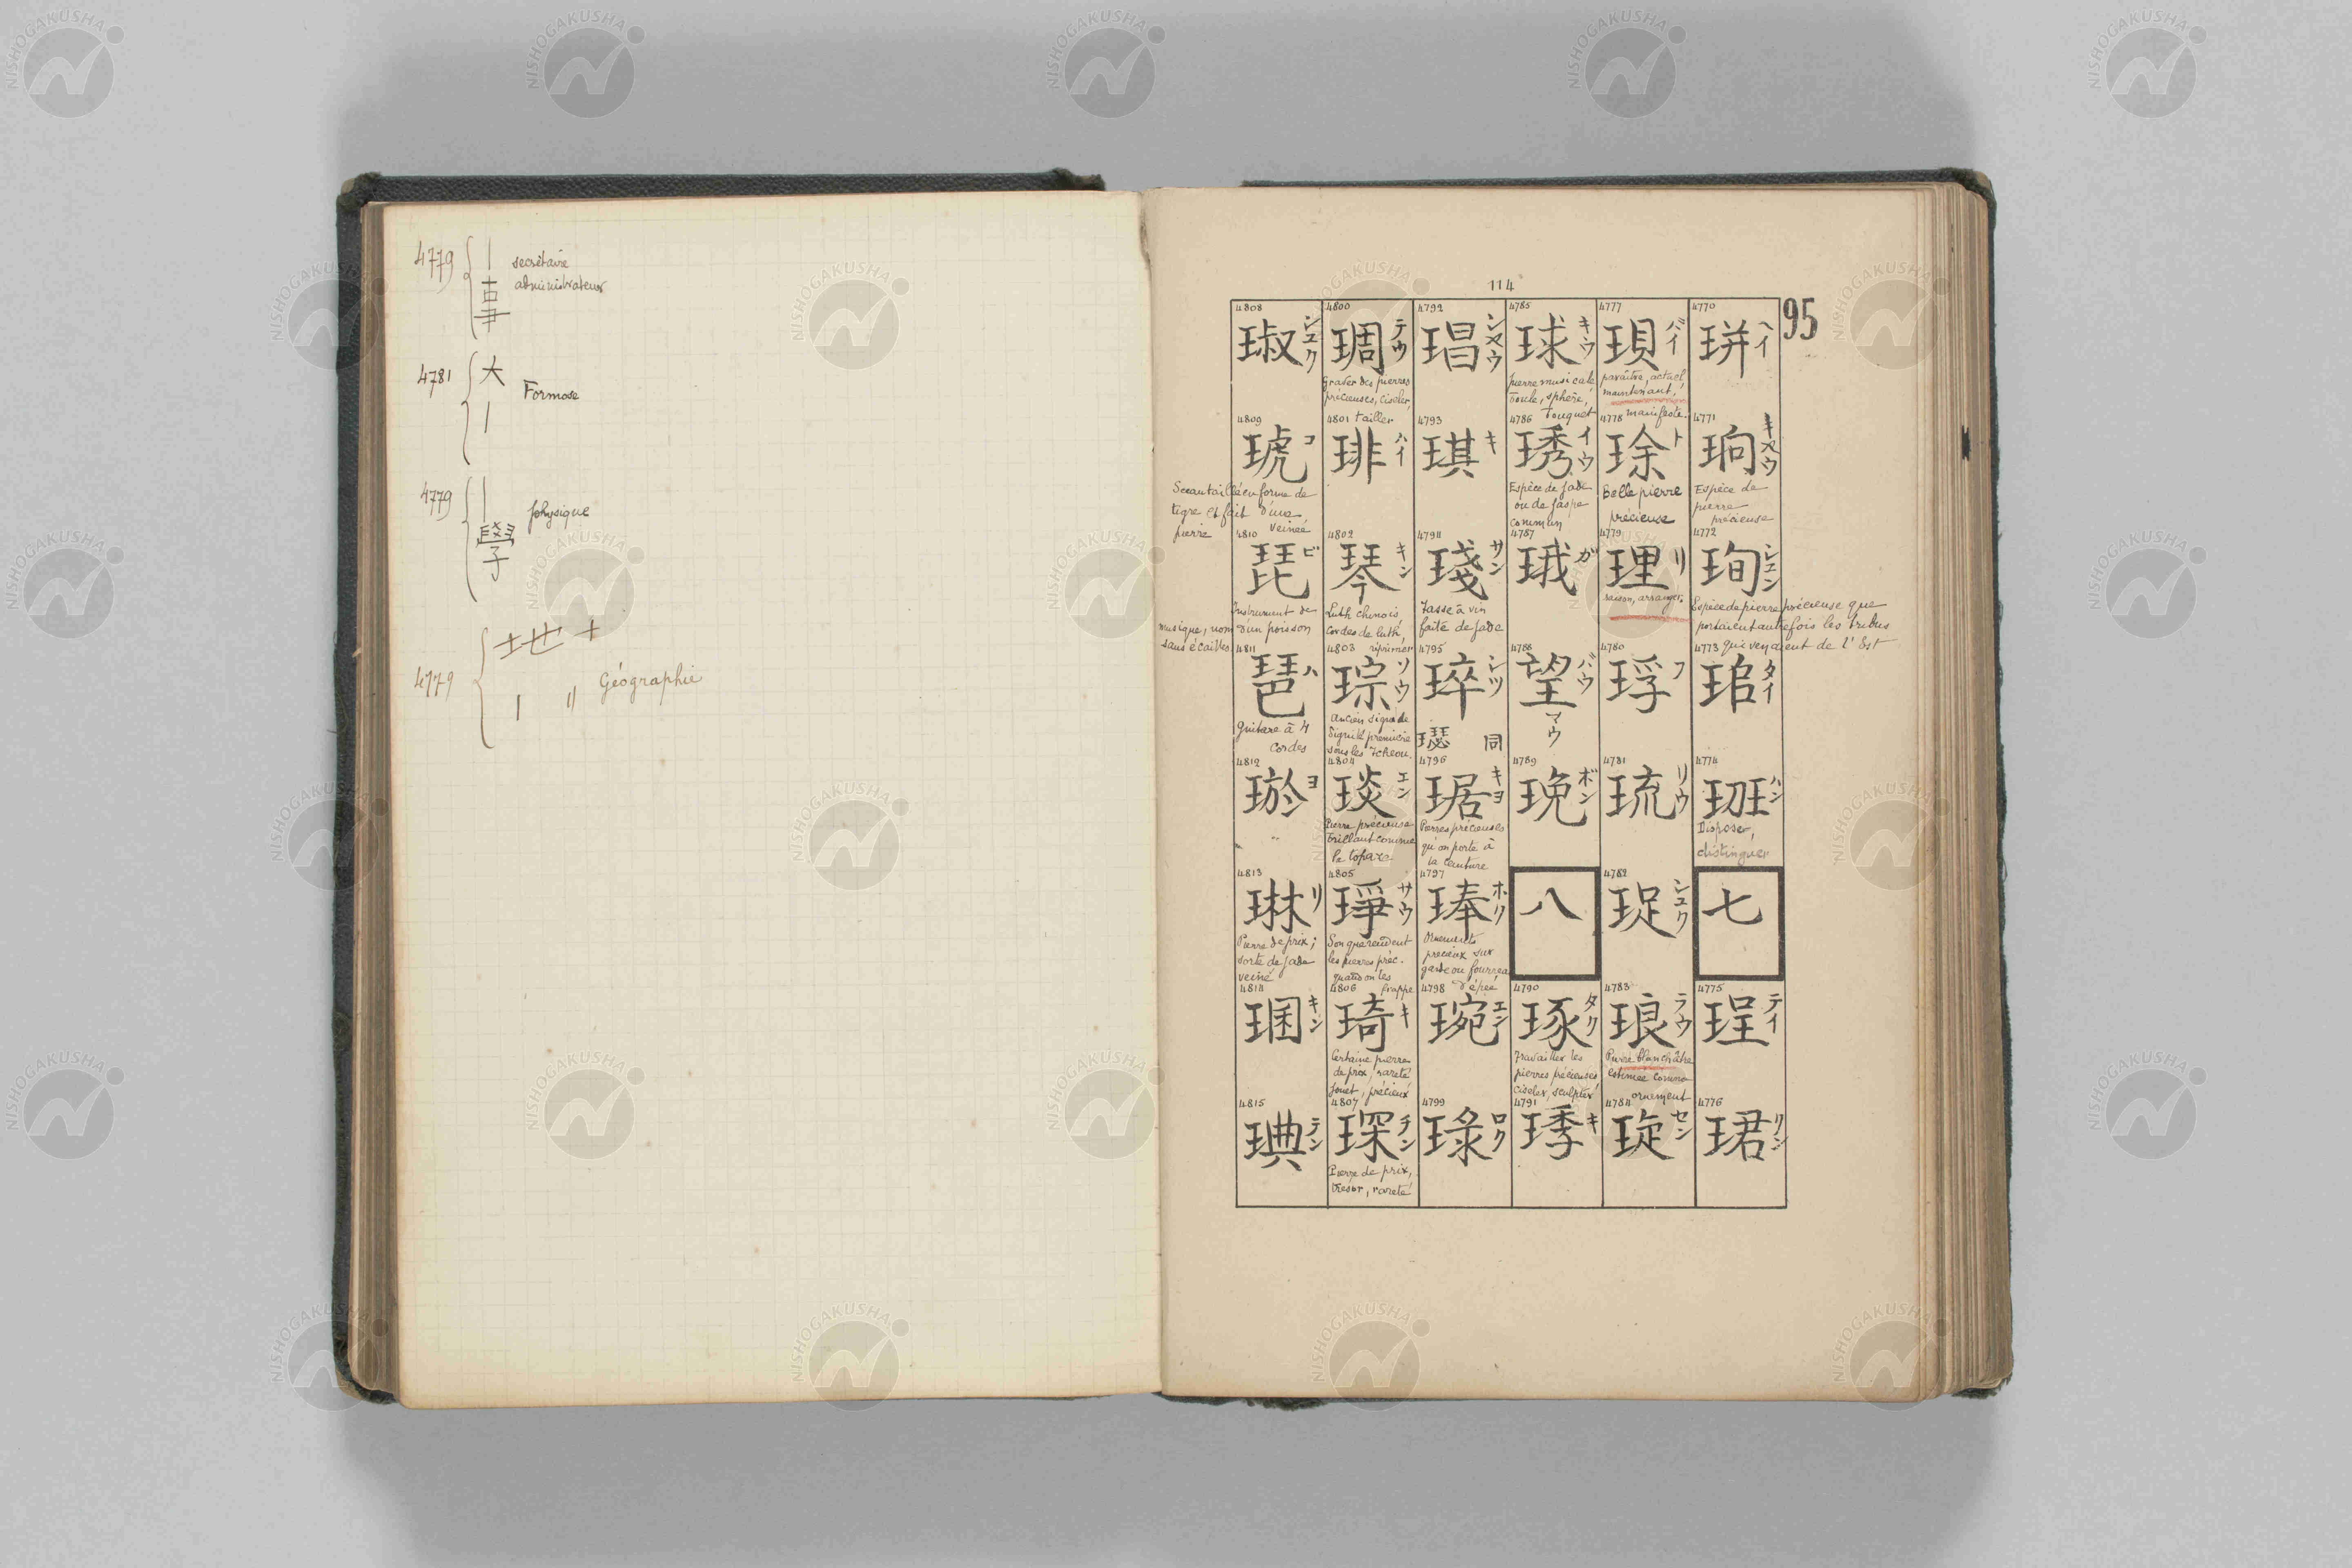 4779
|
事
secrétaire
administrateur
4781
大
|
Formose
4779
|
學
physique
4779
地
|
〃
Géographie
114
95
4770
珜 ヘイ
4771
珦 キヤウ
Espèce de
pierre
précieuse
4772
珣 シュン
Espèce de pierre précieuse que
portaient autrefois les tribus
qui vendaient de l'Est
4773
タイ
4774
班 ハン
Disposer,
distinguer
七
4775
珵 テイ
4776
珺 クン
4777
珼 バイ
paraître, actuel,
maintenant,
manifeste.
4778
珍 ト
Belle pierre
précieuse
4779
理 リ
raison, arranger.
4780
琈 フ
4781
琉 リウ
4782
珿 シュク
4783
琅 ラウ
Pierre blanchâtre
estimée comme
ornement
4784
琁 セン
4785
球 キウ
pierre musicale
boule, sphère,
bouquet
4786
琇 イウ
Espèce de jade
ou de jaspe
commun
4787
珴 ガ
4788
望 バウ
マウ
4789
琓 ボン
八
4790
琢 タク
Travailler les
pierres précieuses
ciseler, sculpter
4791
キ
4792
琩 シヤウ
4793
琪 キ
4794
琖 サン
Tasse à vin
faite de jade
4795
琗 シツ
璱 同
4796
琚 キヨ
Pierres précieuses
qu'on porte à
la ceinture
4797
琫 ホウ
Ornements
précieux sur
garde ou fourreau
d'épée
4798
琬 エン
4799
琭 ロク
4800
琱 テウ
Graver des pierres
précieuses, ciseler,
tailler
4801
琲 ハイ
4802
琴 キン
Luth chinois,
cordes de luth,
réprimer
4803
琮 ソウ
Ancien signe de
dignité première
sous les Tcheou.
4804
琰 エン
Pierre précieuse
brillant comme
la topaze
4805
琤 サウ
Son que rendent
les pierres préc.
quand on les
frappe
4806
琦 キ
Certaine pierre
de prix, rareté
jouet, précieux
4807
琛 チン
Pierre de prix,
trésor, rareté
4808
琡 シュク
4809
琥 コ
Sceau taillé en forme de
tigre et fait d'une
pierre veinée
4810
琵 ビ
Instrument de
musique, nom d'un poisson
sans écailles
4811
琶 ハ
Guitare à 4
cordes
4812
ヨ
4813
琳 リ
Pierre de prix;
sorte de jade
veiné
4814
キン
4815
琠 テン